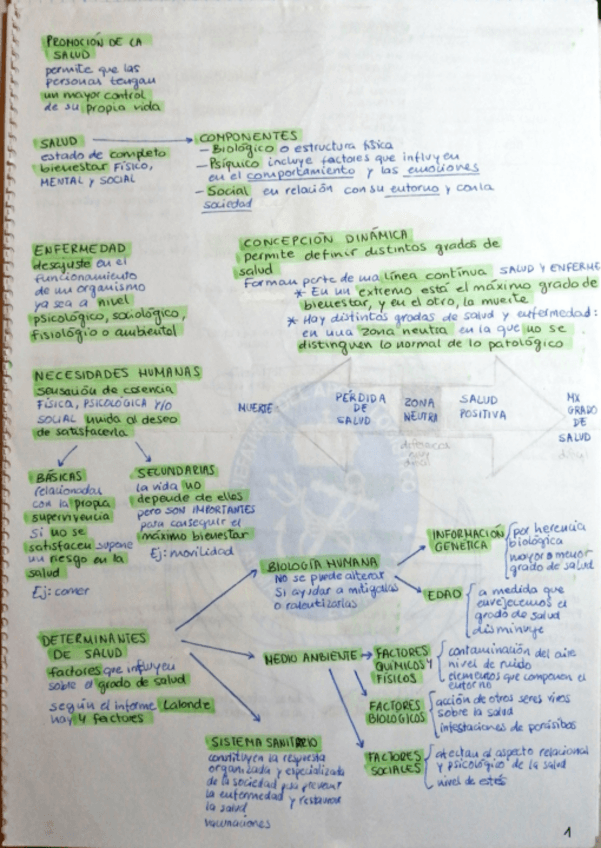 PROMOCIÓN DE LA
SALUD
permite que las
personas tengan
un mayor control
de su propia vida
SALUD
estado de completo
bienestar FÍSICO,
MENTAL y SOCIAL
COMPONENTES
- Biológico o estructura física
- Psíquico incluye factores que influyen
en el comportamiento y las emociones
- Social en relación con su entorno y con la
sociedad
ENFERMEDAD
desajuste en el
funcionamiento
de un organismo
ya sea a nivel
psicológico, sociológico,
fisiológico o ambiental
CONCEPCIÓN DINÁMICA
permite definir distintos grados de
salud
Forman parte de una línea continua SALUD Y ENFERME
* En un extremo está el máximo grado de
bienestar, y en el otro, la muerte
* Hay distintos grados de salud y enfermedad:
en una zona neutra en la que no se
distinguen lo normal de lo patológico
NECESIDADES HUMANAS
sensación de carencia
FÍSICA, PSICOLÓGICA Y/O
SOCIAL unida al deseo
de satisfacerla
MUERTE
PÉRDIDA
DE
SALUD
ZONA
NEUTRA
SALUD
POSITIVA
MX
GRADO
DE
SALUD
BÁSICAS
relacionadas
con la propia
supervivencia
Si no se
satisfacen supone
un riesgo en la
salud
Ej: comer
SECUNDARIAS
la vida no
depende de ellas
pero SON IMPORTANTES
para conseguir el
máximo bienestar
Ej: movilidad
DETERMINANTES
DE SALUD
factores que influyen
sobre el grado de salud
según el informe Lalonde
hay 4 factores
BIOLOGÍA HUMANA
No se puede alterar
Si ayudar a mitigarlas
o ralentizarlas
INFORMACIÓN
GENÉTICA
por herencia
biológica
mayor o menor
grado de salud
EDAD
a medida que
envejecemos el
grado de salud
disminuye
MEDIO AMBIENTE
FACTORES
QUÍMICOS Y
FÍSICOS
contaminación del aire
nivel de ruido
elementos que componen el
entorno
FACTORES
BIOLÓGICOS
acción de otros seres vivos
sobre la salud
infestaciones de parásitos
FACTORES
SOCIALES
afectan al aspecto relacional
y psicológico de la salud
nivel de estrés
SISTEMA SANITARIO
constituyen la respuesta
organizada y especializada
de la sociedad para prevenir
la enfermedad y restaurar
la salud
vacunaciones
1